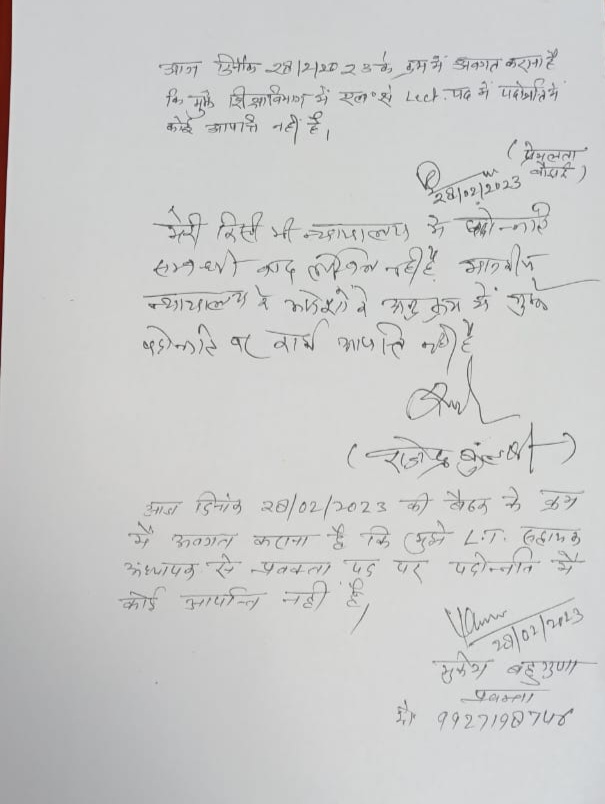 आज दिनांक 28/2/2023 के क्रम में अवगत कराना है
कि मुझे शिक्षा विभाग में एल॰टी से Lect. पद में पदोन्नति में
कोई आपत्ति नहीं है।
(प्रेमलता
बौड़ाई)
28/02/2023
मेरी किसी भी न्यायालय में पदोन्नति
सम्बन्धी वाद लम्बित नहीं है माननीय
न्यायालय के आदेशों के अनुक्रम में मुझे
पदोन्नति पर कोई आपत्ति नहीं है
(राजेन्द्र
आज दिनांक 28/02/2023 की बैठक के क्रम
में अवगत कराना है कि मुझे L.T. सहायक
अध्यापक से प्रवक्ता पद पर पदोन्नति में
कोई आपत्ति नहीं है,
28/02/2023
मुकेश बहुगुणा
प्रवक्ता
मो॰